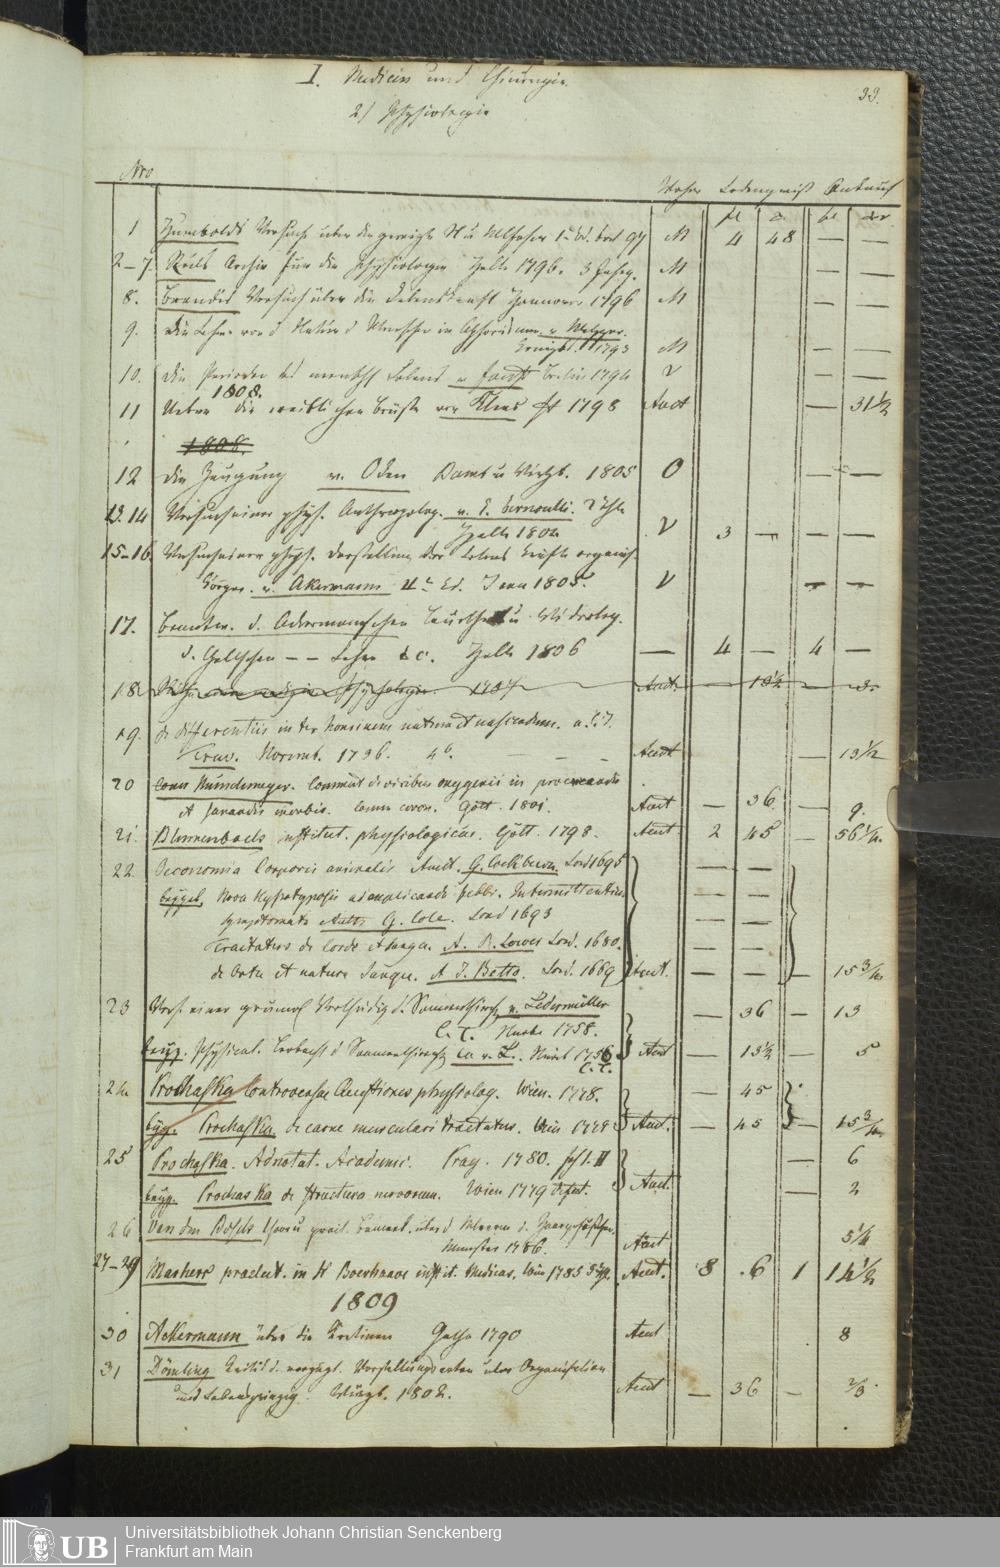 I. Medicin und Chirurgie.
33.
2) Physiologie
Nro
Woher Ladenpreiß Ankauf
fl x fl xr
1 Humboldt Versuche über die gereizte M u Nfaser 1r Bd. 97 M 4 48 — —
2–7. Reils Archiv für die Physiologie Halle 1796. M — —
8. Brandis Versuch über die Lebenskraft Hannover 1796 M — —
9. Die Lehre von d Natur d Menschen in Aphorismen. v Metzger.
1793 M — —
10. Die Perioden des menschl Lebens v Faust Berlin 1794 V — —
1808.
11 Ueber die weiblichen Brüste von Klees Fft 1798 Auct — 31½
1808.
12 Die Zeugung v. Oken Bamb u Wirzb. 1805 O — —
13. 14 Versuch einer phys. Anthropolog. v. Bernoulli. 2 Thle
Halle 1804 V 3 — — —
15–16. Versuch einer phys. Darstellung der Lebens Kräfte organis.
Körper. v. Akermann 2te Ed. Jena 1805. V — —
17. d. Ackermannschen u. Widerleg.
d. Gallschen — — Lehre &c. Halle 1806 — 4 — 4 —
18 Auct. — 13½ — 3.
19. de differentiis inter hominem natum et nascendum.
Trew. Norimb. 1736. 4°. Auct — 13½
20 Conr Mündemeyer. Comment de viribus oxygenii in procreandis
et sanandis morbis. Comm coron. Gött. 1801. Auct — 36 — 9.
21. Blumenbachs institut. physiologicae. Gött. 1798. Auct 2 45 — 56¼.
22. Oeconomia Corporis animalis Auct. G. Cockburn. Lond 1695 — —
beygeb. Nova Hypotyposis ad explicanda febr. Intermittentium — —
symptomata Auct. G. Cole. Lond 1693 — —
Tractatus de Corde et sangu. A. R. Lower Lond. 1680. — —
de Ortu et natura Sangu. A J. Betto. Lond. 1669 Auct. — — — 15¾
23 Vers. einer gründl Vertheidig d. Saamenthierch v. Ledermüller — 36 — 13
C. T. Nürnb 1758.
beyg. Physical. Beobacht d Saamenthierch ea v. L. Nürnb 1756 Auct — 13½ — 5
C. T.
24. Prochaska Controversae Quaestiones physiolog. Wien. 1778. — 45
beyg. Prochaska de carne musculari tractatus. Wien 1778 Auct. — 45 — 15¾
25 Prochaska. Adnotat. Academic. Prag. 1780. — 6
beyg. Prochaska de structura nervorum. Wien 1779 Auct. — 2
26 Van den Bosch
Münster 1786. Auct 5¼
27–29 Marherr praelect. in H Boerhaave instit. medicas. Wien 1785 Auct. 8 . 6 1 14½
1809
30 Ackermann über die Kretinen Gotha 1790 Auct 8
31 Dömling Kritik d. vorzügl. Vorstellungsarten über Organisation
und Lebensprinzip. Würzb. 1802. Auct — 36 — ⅔
Universitätsbibliothek Johann Christian Senckenberg
Frankfurt am Main
UB